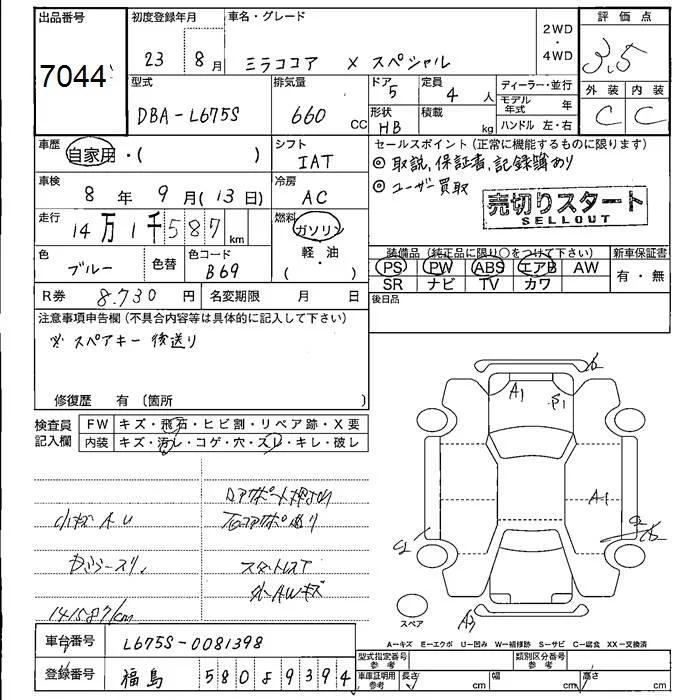 出品番号 7044
初度登録年月 23 8月
車名・グレード ミラココア X スペシャル
2WD・4WD
評価点 3.5
外装 C 内装 C
型式 DBA-L675S
排気量 660 CC
ドア 5
定員 4 人
形状 HB
積載 kg
ディーラー・並行
モデル年式 年
ハンドル 左・右
車歴 自家用・( )
シフト IAT
セールスポイント(正常に機能するものに限ります)
◎ 取説,保証書,記録簿あり
◎ ユーザー買取
売切りスタート
SELLOUT
車検 8年 9月(13日)
冷房 AC
走行 14万1千587km
燃料 ガソリン・軽・油( )
色 ブルー 色替
色コード B69
装備品(純正品に限り○をつけて下さい)
PS PW ABS エアB AW
SR ナビ TV カワ
新車保証書 有・無
R券 8.730円
名変期限 月 日
後日品
注意事項申告欄(不具合内容等は具体的に記入して下さい)
※ スペアキー 後送り
修復歴 有(箇所 )
検査員記入欄
FW キズ・飛石・ヒビ割・リペア跡・X要
内装 キズ・汚レ・コゲ・穴・スレ・キレ・破レ
小キズ A U
141587km
スタットレス
外-AWキズ
A1
B1
A1
スペア
A-キズ E-エクボ U-凹み W-補修跡 S-サビ C-腐食 XX-交換済
車台番号 L675S-0081398
登録番号 福島 580 よ 9394
型式指定番号 参考
類別区分番号 参考
車庫証明用参考 長さ cm 幅 cm 高さ cm